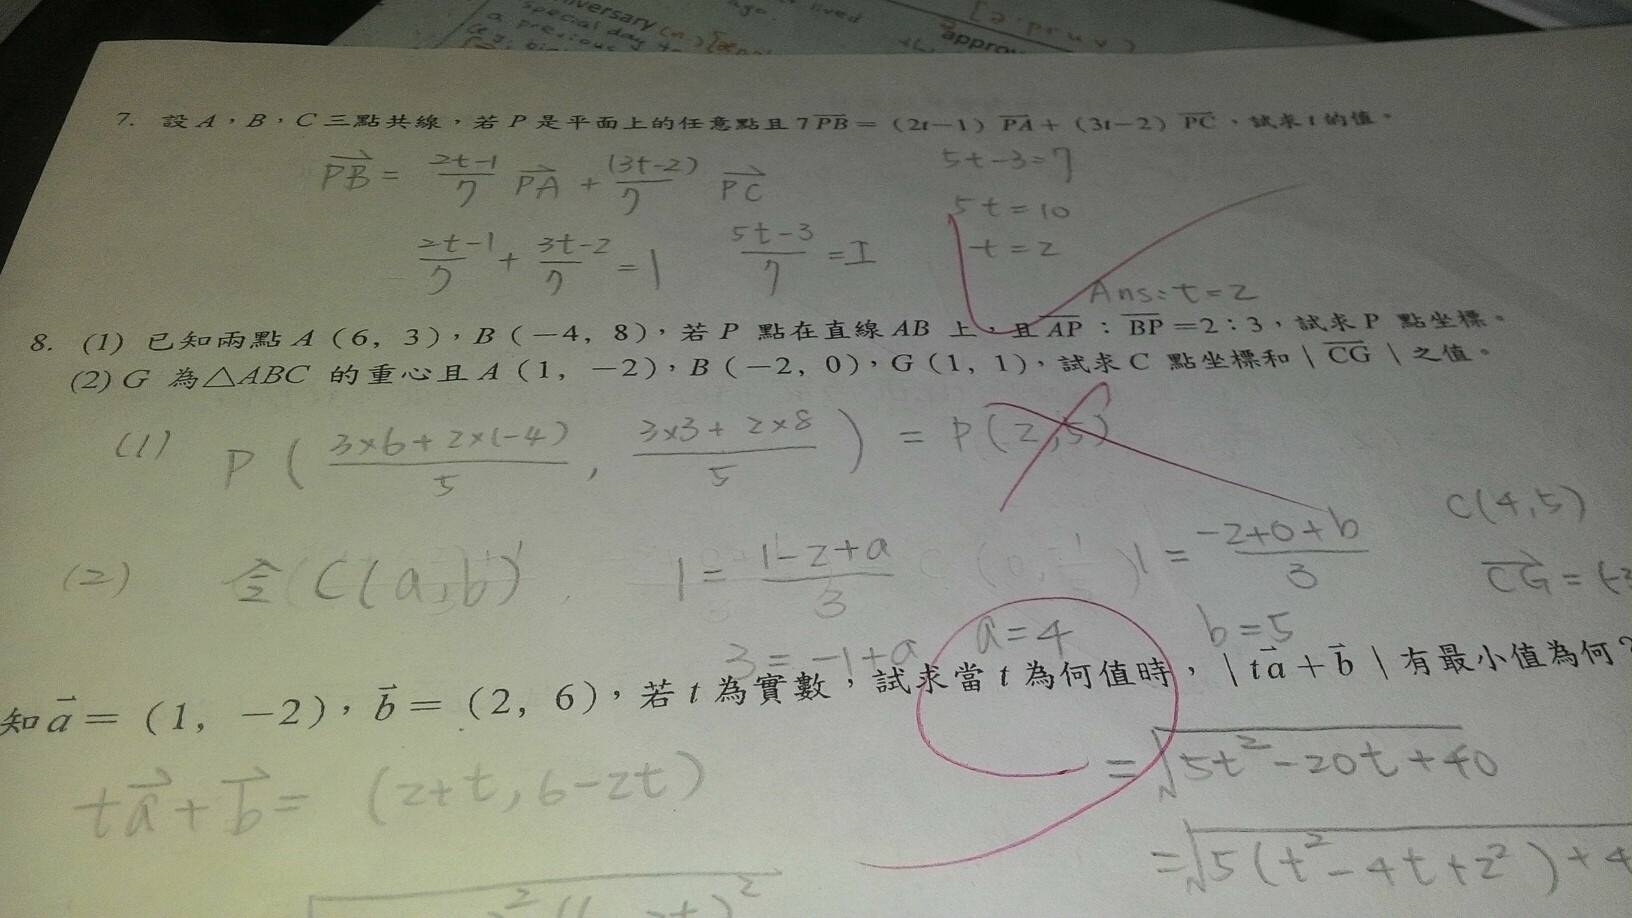 special day
a previous
ago.
lived
7. 設 A，B，C 三點共線，若 P 是平面上的任意點且 7 PB = (2t−1) PA + (3t−2) PC，試求 t 的值。
PB = 2t-1/7 PA + (3t-2)/7 PC
5t-3=7
5t=10
2t-1/7 + 3t-2/7 = 1
5t-3/7 = 1
t=2
Ans: t=2
8. (1) 已知兩點 A (6, 3)，B (−4, 8)，若 P 點在直線 AB 上，且 AP：BP = 2：3，試求 P 點坐標。
(2) G 為△ABC 的重心且 A (1, −2)，B (−2, 0)，G (1, 1)，試求 C 點坐標和 | CG | 之值。
(1) P ( 3×6+2×(-4)/5 , 3×3+2×8/5 ) = P(2,5)
(2) 令 C(a,b)
1 = 1-2+a/3
1 = -2+0+b/3
C(4,5)
CG = (-3
3 = -1+a
a=4
b=5
知 a = (1, −2)，b = (2, 6)，若 t 為實數，試求當 t 為何值時，| ta + b | 有最小值為何？
ta + b = (2+t, 6-2t)
= √5t²-20t+40
= √5(t²-4t+2²)+4